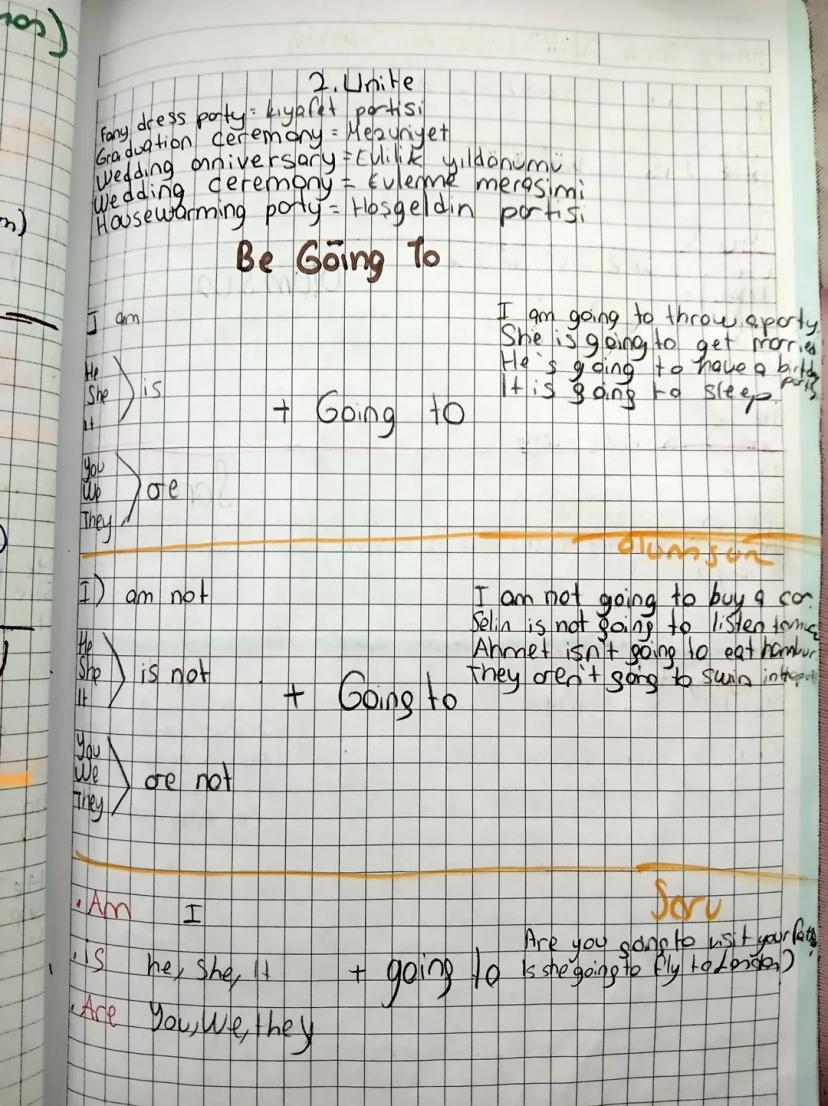 2. Unite
Fany dress party = kıyafet partisi
Graduation ceremony = Mezuniyet
Wedding anniversary = Evlilik yıldönümü
Wedding ceremony = Evlenme merasimi
Housewarming party = Hoşgeldin partisi
Be Going To
I am
He
She
It
is
You
We
They
are
+ Going to
I am going to throw a party
She is going to get married
He's going to have a birthday
party
It is going to sleep
Olumsuz
I) am not
He
She
It
is not
You
We
They
are not
+ Going to
I am not going to buy a car
Selin is not going to listen to
Ahmet isn't going to eat hambur
They aren't going to swim in the
Soru
.Am I
.is he, She, It
.Are You, We, they
+ going to
Are you going to visit your
Is she going to fly to London?